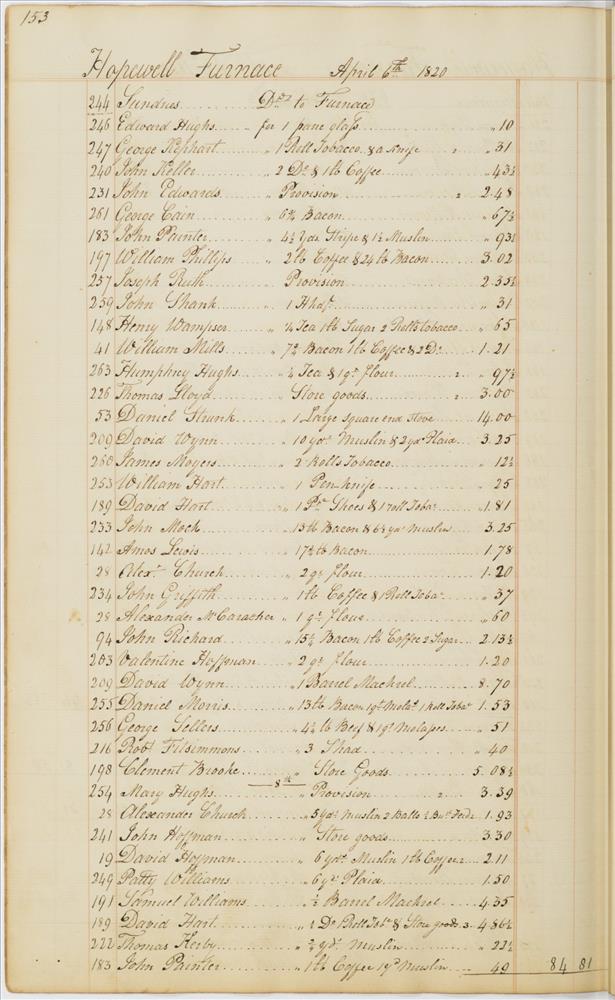 153
Hopewell Furnace April 6th 1820
244 Sundries Drs to Furnace
246 Edward Hughs for 1 pane glass " 10
247 George Kephart " 1 Roll Tobacco & a Knife " 31
240 John Keller " 2 Do & 1 lb Coffee " 43½
231 John Edwards " Provision 2.48
261 George Cain " 6¾ Bacon " 67½
183 John Painter " 4½ Yds Stripe & 1½ Muslin " 93½
197 William Phillips " 2 lb Coffee & 24 lb Bacon 3.02
257 Joseph Ruth Provision 2.35½
259 John Shank " 1 Hhdf " 31
148 Henry Wampser " ¼ Tea 1 lb Sugar 2 Rolls tobacco " 65
41 William Mills " 7¾ Bacon 1 lb Coffee & 2 Do 1.21
263 Humphrey Hughs " ¼ Tea & 1 qr flour " 97½
226 Thomas Lloyd " Store goods 3.00
53 Daniel Strunk " 1 Large square end stove 14.00
209 David Wynn " 10 yds Muslin & 2 yds Plaid 3.25
260 James Moyers " 2 Rolls Tobacco " 12½
253 William Hart " 1 Pen knife " 25
189 David Hart " 1 Pr Shoes & 1 roll Tobo 1.81
233 John Mock " 13 lb Bacon & 6½ yds Muslin 3.25
142 Amos Lewis " 17¾ lb Bacon 1.78
28 Alexr Church " 2 qr flour 1.20
234 John Griffith " 1 lb Coffee & 1 Roll Tobo " 37
28 Alexander McCaracher " 1 qr flour " 60
94 John Richard " 15½ Bacon 1 lb Coffee 2 Sugar 2.13½
203 Valentine Hoffman " 2 qr flour 1.20
209 David Wynn " 1 Barrel Mackrel 8.70
255 Daniel Morris " 13 lb Bacon 1 qt Molas 1 Roll Tobo 1.53
256 George Sellers " 4½ lb Beef & 1 qt Molasses " 51
216 Robt Fitsimmons " 3 Shad " 40
198 Clement Brooke " Store Goods 5.08½
8th
254 Mary Hughs " Provision " 3.39
28 Alexander Church " 5 yds Muslin 2 Balls 1.93
241 John Hoffman " Store goods 3.30
19 David Hoffman " 6 yds Muslin 1 lb Coffee 2.11
249 Patty Williams " 6 yds Plaid 1.50
191 Samuel Williams " ½ Barrel Mackrel 4.35
189 David Hart " 1 Do Roll Tobo & Store goods 4.86½
222 Thomas Kerby " ¾ yds Muslin " 22½
183 John Painter " 1 lb Coffee 1 yd Muslin 49 84 81